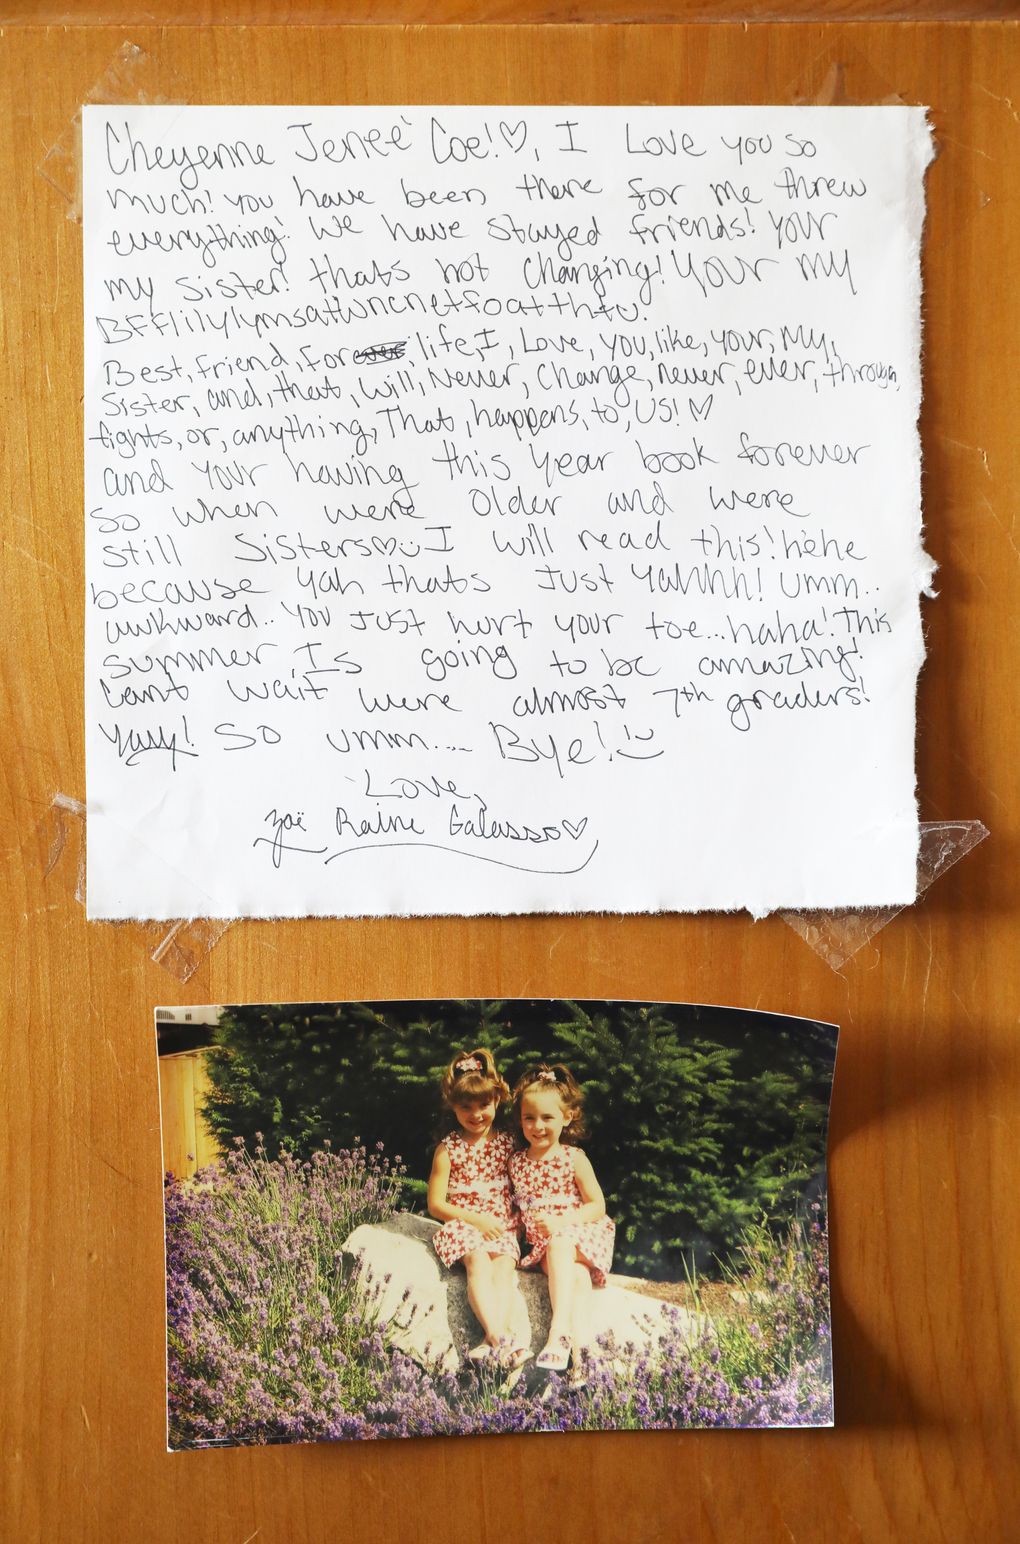 Cheyenne Jeneé Coe!♡, I Love you so
much! you have been there for me threw
everything! We have stayed friends! your
my sister! thats not changing! Your my
Best, friend, for life, I, Love, you, like, your, My,
Sister, and, that, will, Never, Change, never, ever, through,
fights, or, anything, That, happens, to, US! ♡
and your having this year book forever
so when were older and were
still sisters♡ I will read this! hehe
because yah thats Just Yahhh! umm..
awkward.. You Just hurt your toe...haha! This
summer Is going to be amazing!
Cant wait were almost 7th graders!
Yayy! So umm.... Bye! :)
Love,
Zoë Raine Galasso♡